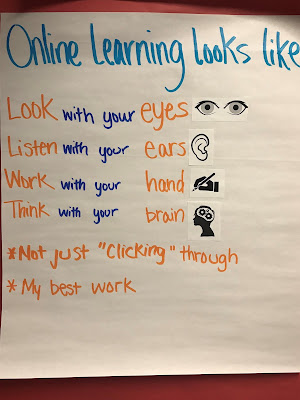 Online Learning looks like
Look with your eyes
Listen with your ears
Work with your hand
Think with your brain
*Not just "Clicking" through
*My best work